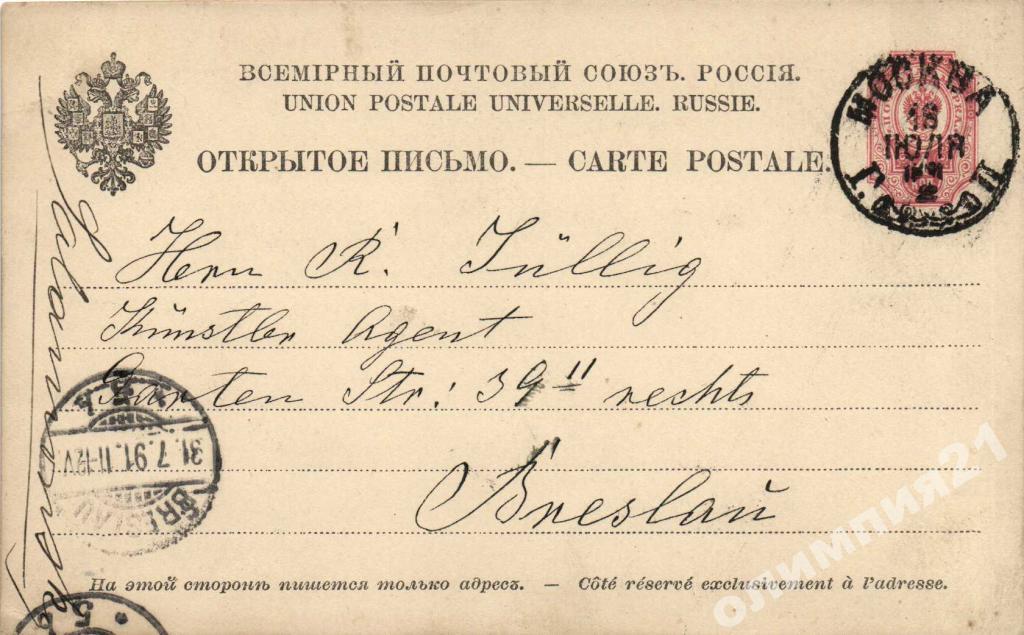 ВСЕМІРНЫЙ ПОЧТОВЫЙ СОЮЗЪ. РОССІЯ.
UNION POSTALE UNIVERSELLE. RUSSIE.
ОТКРЫТОЕ ПИСЬМО. — CARTE POSTALE.
МОСКВА
18
ІЮЛЯ
Herrn R. Jüllig
Künstler Agent
Garten Str: 39 II rechts
Breslau
31.7.91.11-12V
BRESLAU
На этой сторонѣ пишется только адресъ. — Côté réservé exclusivement à l'adresse.
5
олимпия21